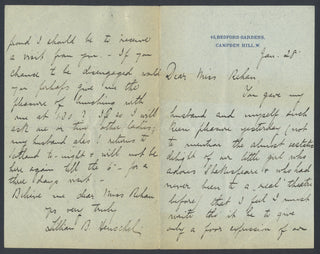 45, BEDFORD GARDENS,
CAMPDEN HILL, W.
Jan. 28
Dear Miss Rehan
You gave my
husband and myself such
keen pleasure yesterday (not
to mention the almost ecstatic
delight of our little girl who
adores Shakespeare & who had
never been to a real theatre
before) that I feel I must
write this if it be to give
only a poor expression of our
proud I should be to receive
a visit from you - If you
chance to be disengaged would
you perhaps give me the
pleasure of lunching with
me at 1.30? If so I will
ask one or two other ladies;
my husband also returns to
to-night & will not be
here again till the 6th - for a
three days visit -
Believe me dear Miss Rehan
yrs very truly
Lillian B Henschel